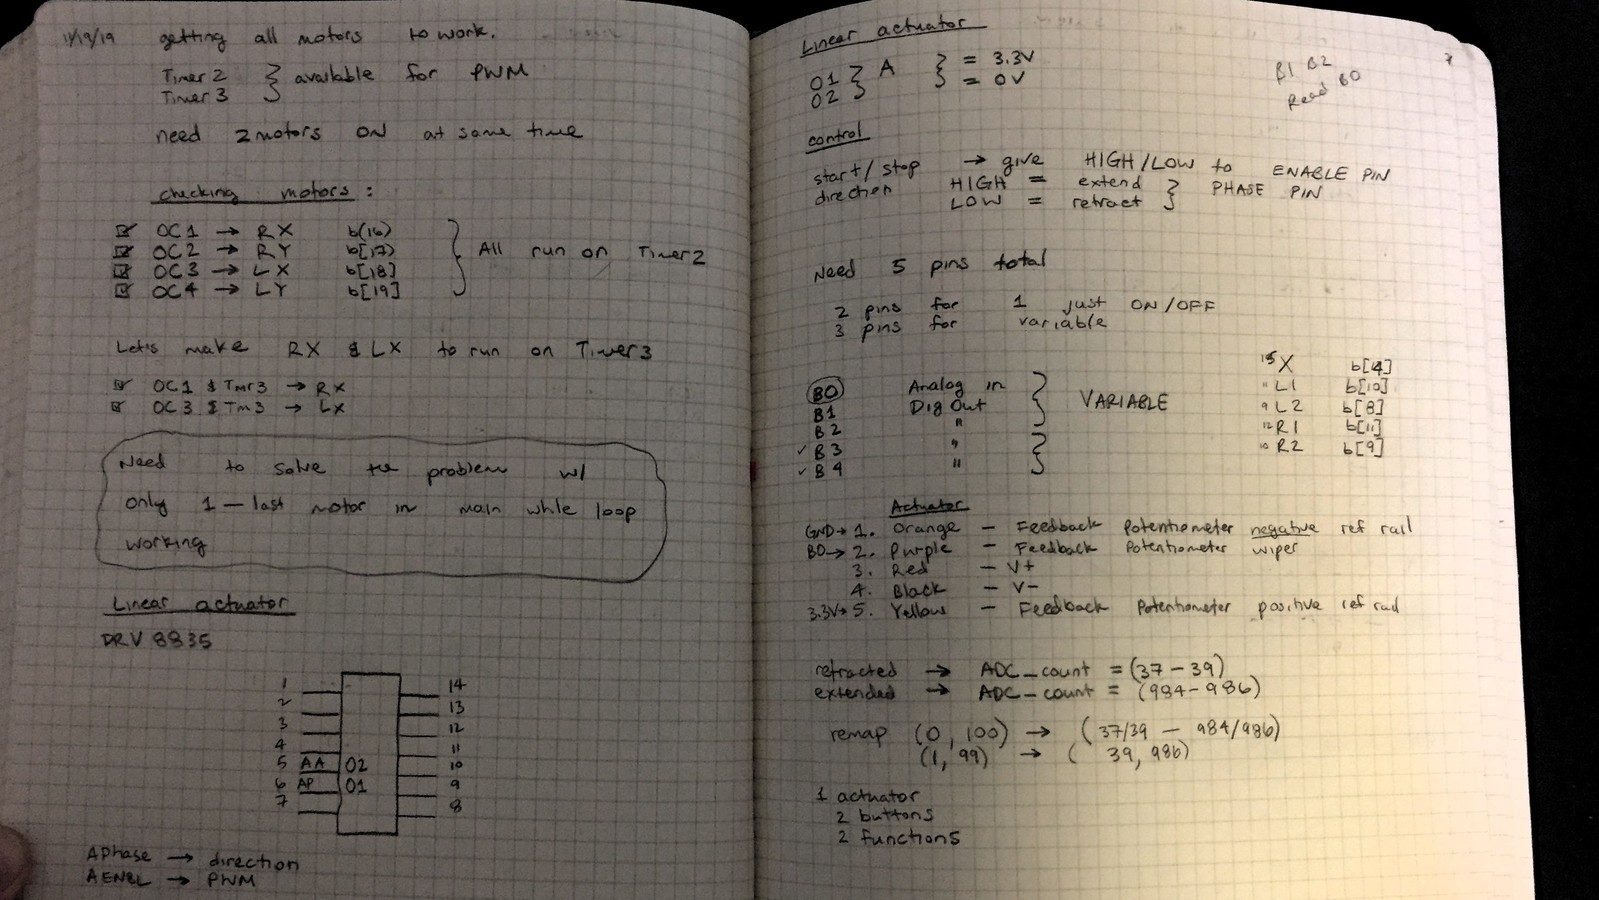 11/19/19 getting all motors to work.
Timer 2
Timer 3 } available for PWM
need 2 motors ON at same time
checking motors :
☑ OC1 → RX b(16)
☑ OC2 → RY b[17)
☑ OC3 → LX b[18]
☑ OC4 → LY b[19]
} All run on Timer 2
Let's make RX & LX to run on Timer 3
☑ OC1 & Tmr3 → RX
☑ OC3 & Tm3 → LX
Need to solve the problem w/
only 1 — last motor in main while loop
working
Linear actuator
DRV 8835
1 14
2 13
3 12
4 11
5 AA O2 10
6 AP O1 9
7 8
APhase → direction
AENBL → PWM
Linear actuator
O1 } A } = 3.3V
O2 } = 0V
B1 B2
Read B0
control
start/stop → give HIGH/LOW to ENABLE PIN
direction HIGH = extend } PHASE PIN
LOW = retract
Need 5 pins total
2 pins for 1 just ON/OFF
3 pins for variable
B0 Analog in
B1 Dig Out } VARIABLE
B2 "
✓ B3 "
✓ B4 "
15 X b[14]
11 L1 b[10]
9 L2 b[8]
12 R1 b[11]
10 R2 b[9]
Actuator
GND→ 1. Orange — Feedback Potentiometer negative ref rail
B0→ 2. Purple — Feedback Potentiometer wiper
3. Red — V+
4. Black — V-
3.3V→ 5. Yellow — Feedback Potentiometer positive ref rail
retracted → ADC_count = (37 - 39)
extended → ADC_count = (984 - 986)
remap (0, 100) → (37/39 — 984/986)
(1, 99) → ( 39, 986)
1 actuator
2 buttons
2 functions